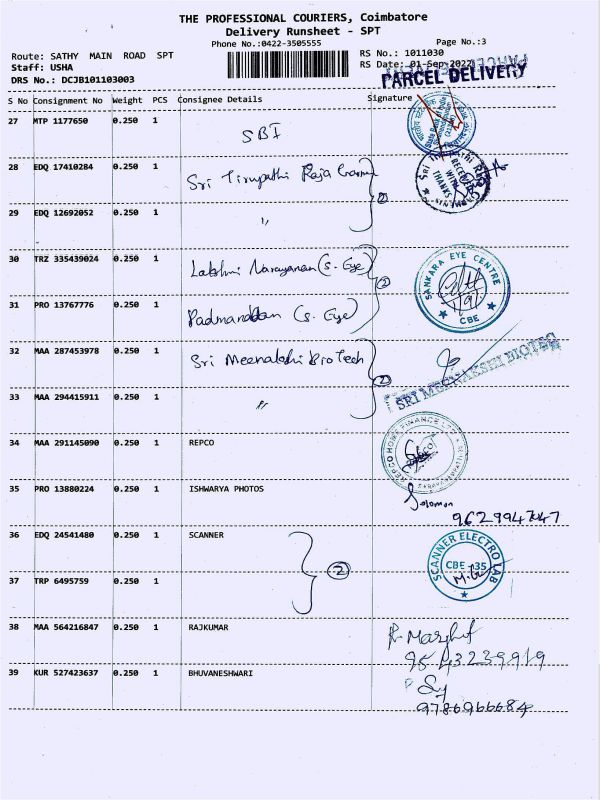 THE PROFESSIONAL COURIERS, Coimbatore
Delivery Runsheet - SPT
Phone No.:0422-3505555
Page No.:3
Route: SATHY MAIN ROAD SPT
RS No.: 1011030
Staff: USHA
RS Date: 01-Sep-2022
DRS No.: DCJB101103003
PARCEL DELIVERY
S No Consignment No Weight PCS Consignee Details Signature
27 MTP 1177650 0.250 1 SBI
28 EDQ 17410284 0.250 1 Sri Tirupathi Raja
29 EDQ 12692052 0.250 1 "
2
RECEIVED WITH THANKS
30 TRZ 335439024 0.250 1 Lakshmi Narayanan (S. Eye)
31 PRO 13767776 0.250 1 (S. Eye)
2
SANKARA EYE CENTRE
CBE
32 MAA 287453978 0.250 1 Sri Meenakshi BioTech
33 MAA 294415911 0.250 1 "
2
SRI MEENAKSHI BIOTEC
34 MAA 291145090 0.250 1 REPCO
REPCO HOME FINANCE LTD
35 PRO 13880224 0.250 1 ISHWARYA PHOTOS
Solomon
9629947047
36 EDQ 24541480 0.250 1 SCANNER
37 TRP 6495759 0.250 1
2
SCANNER ELECTRO LAB
CBE - 35
38 MAA 564216847 0.250 1 RAJKUMAR
9543239919
39 KUR 527423637 0.250 1 BHUVANESHWARI
9786966684